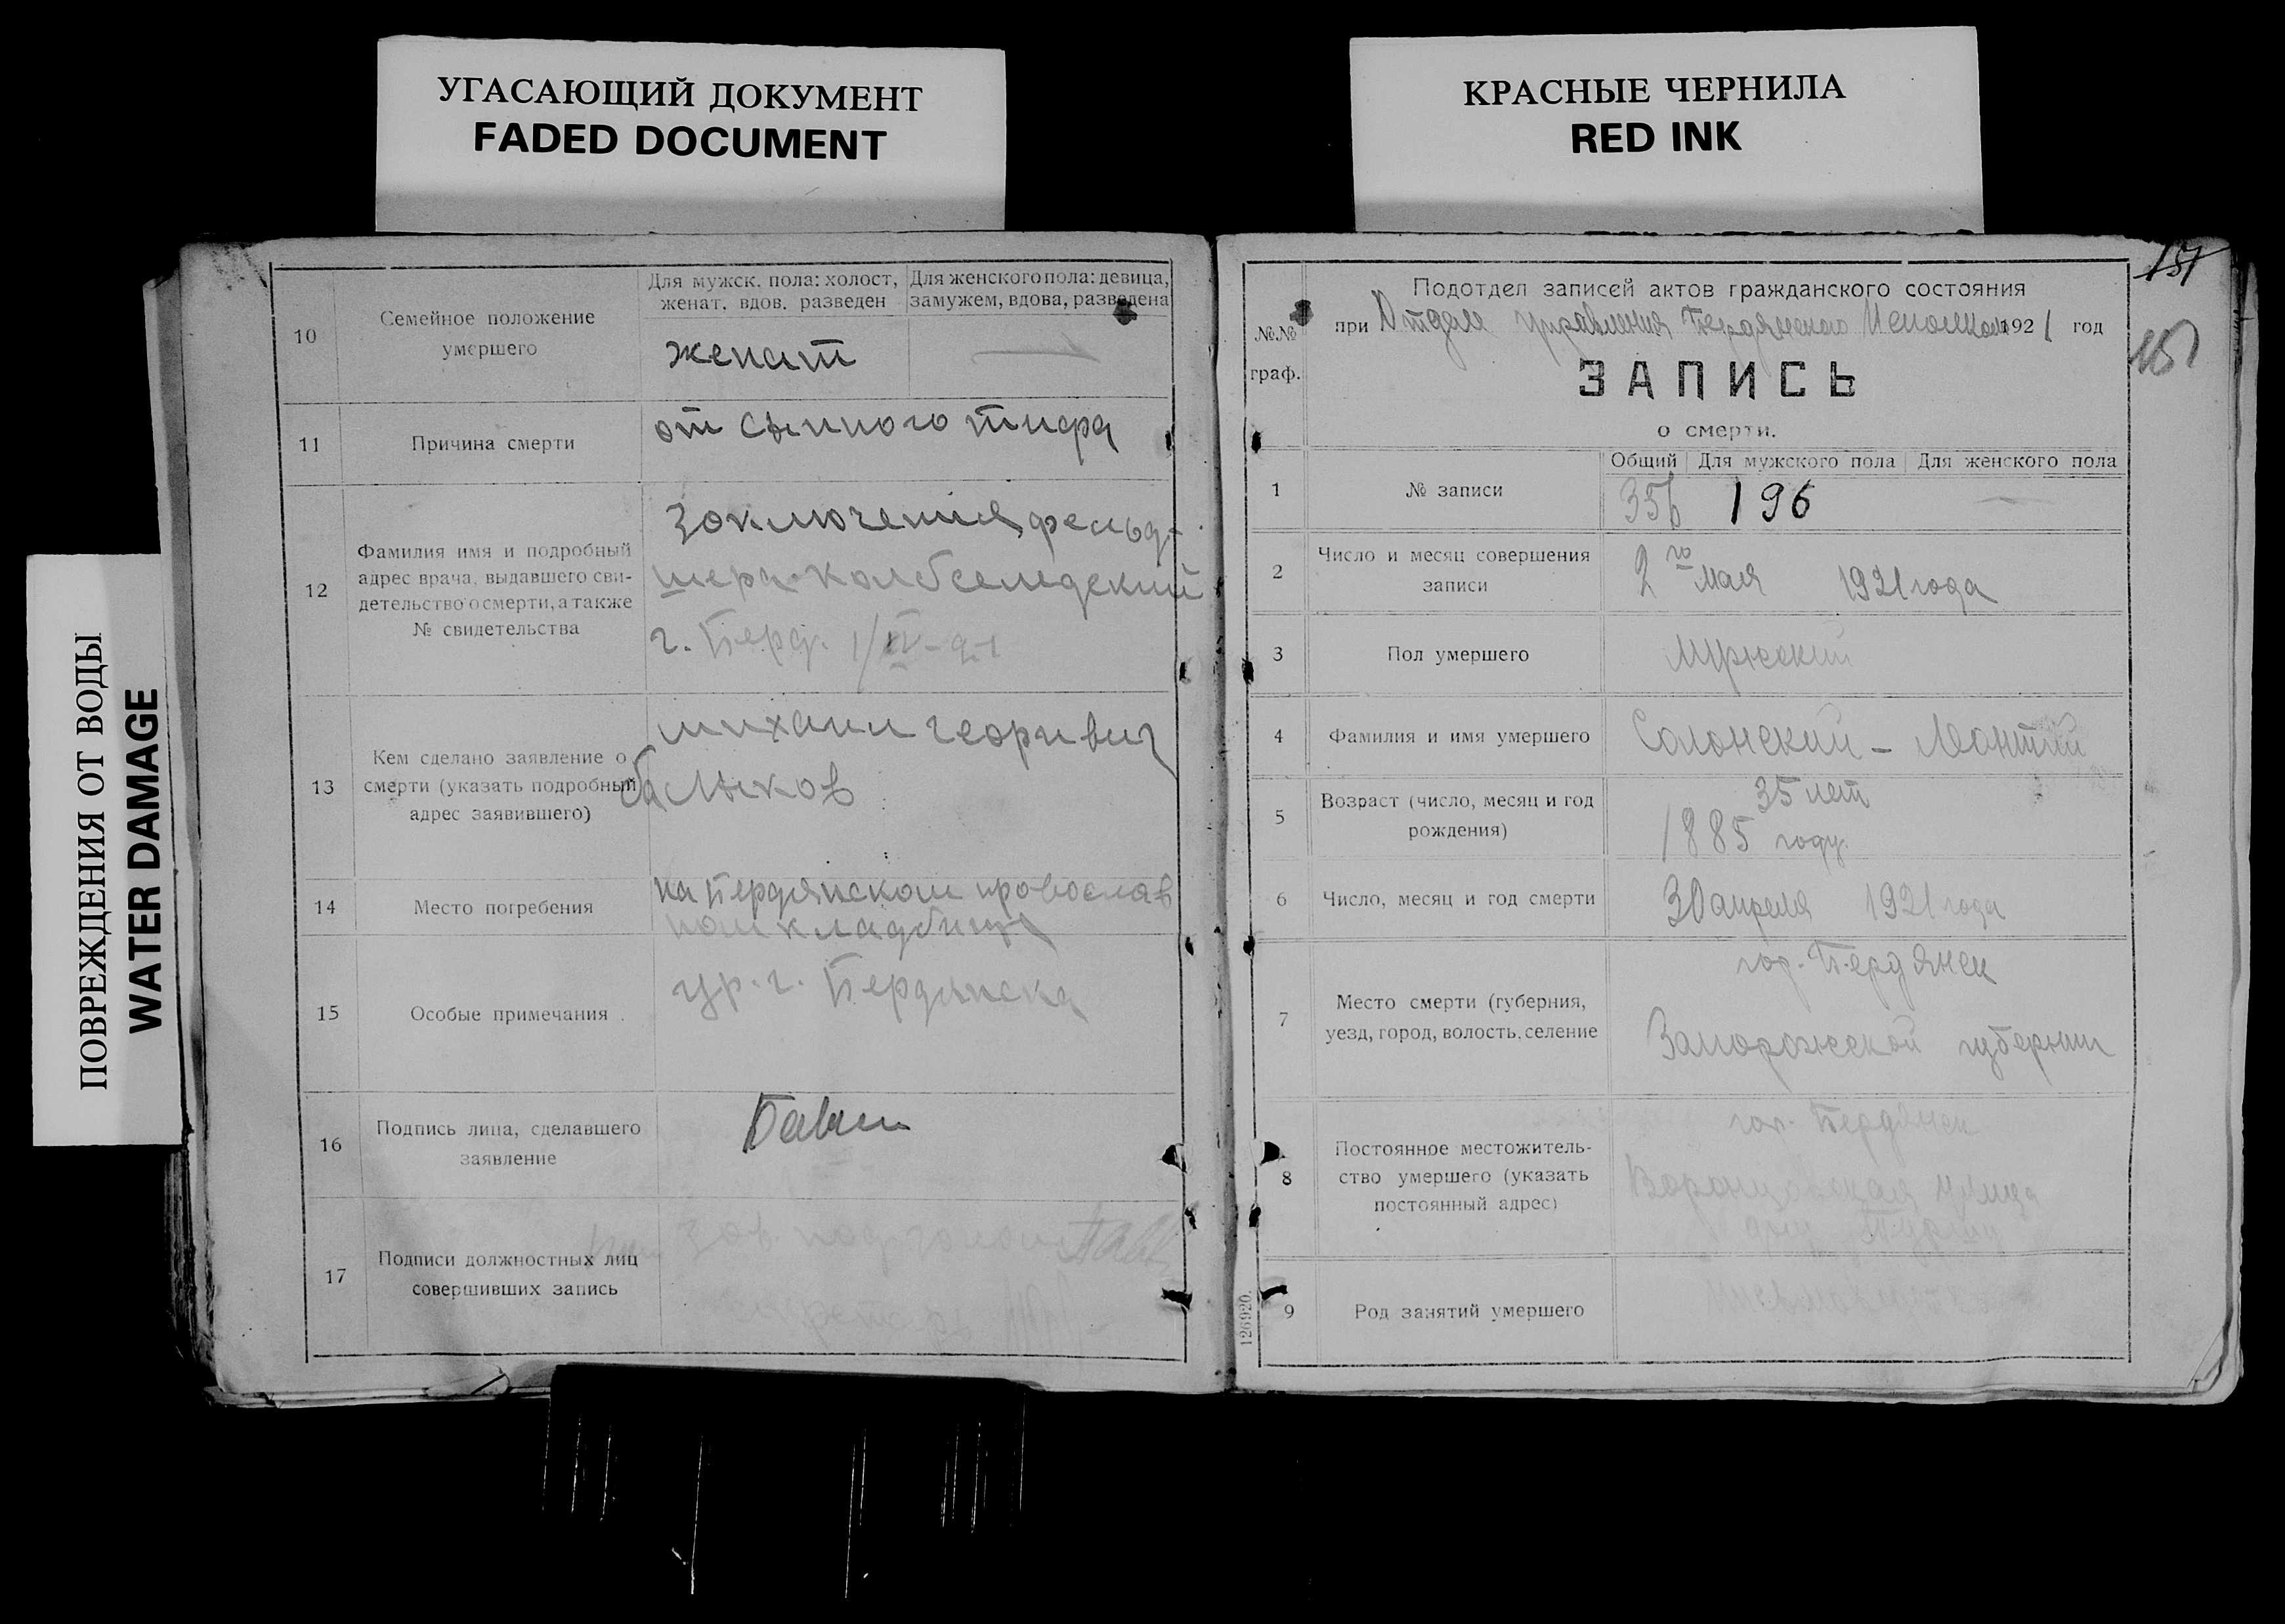 УГАСАЮЩИЙ ДОКУМЕНТ
FADED DOCUMENT
КРАСНЫЕ ЧЕРНИЛА
RED INK
ПОВРЕЖДЕНИЯ ОТ ВОДЫ
WATER DAMAGE
10
Семейное положение
умершего
Для мужск. пола: холост,
женат, вдов. разведен
Для женского пола: девица,
замужем, вдова, разведена
женат
11
Причина смерти
от сыпного тифа
12
Фамилия имя и подробный
адрес врача, выдавшего сви-
детельство о смерти, а также
№ свидетельства
Зоключения фельд-
шера
г. Берд.
13
Кем сделано заявление о
смерти (указать подробный
адрес заявившего)
михаил георгивич
балыков
14
Место погребения
на Бердянском провослав
ном кладбище
15
Особые примечания
гр. г. Бердянска
16
Подпись лица, сделавшего
заявление
17
Подписи должностных лиц
совершивших запись
Зав.
151
151
№№
граф.
Подотдел записей актов гражданского состояния
при Отделе управления Бердянского Исполкома 1921 год
ЗАПИСЬ
о смерти.
1
№ записи
Общий
Для мужского пола
Для женского пола
356
196
2
Число и месяц совершения
записи
2го мая 1921 года
3
Пол умершего
Мужской
4
Фамилия и имя умершего
Солонский –
5
Возраст (число, месяц и год
рождения)
35 лет
1885 году.
6
Число, месяц и год смерти
30 апреля 1921 года
7
Место смерти (губерния,
уезд, город, волость, селение
гор. Бердянск
Запорожской губернии
8
Постоянное местожитель-
ство умершего (указать
постоянный адрес)
гор. Бердянск
Воронцовская улица
9
Род занятий умершего
126920.